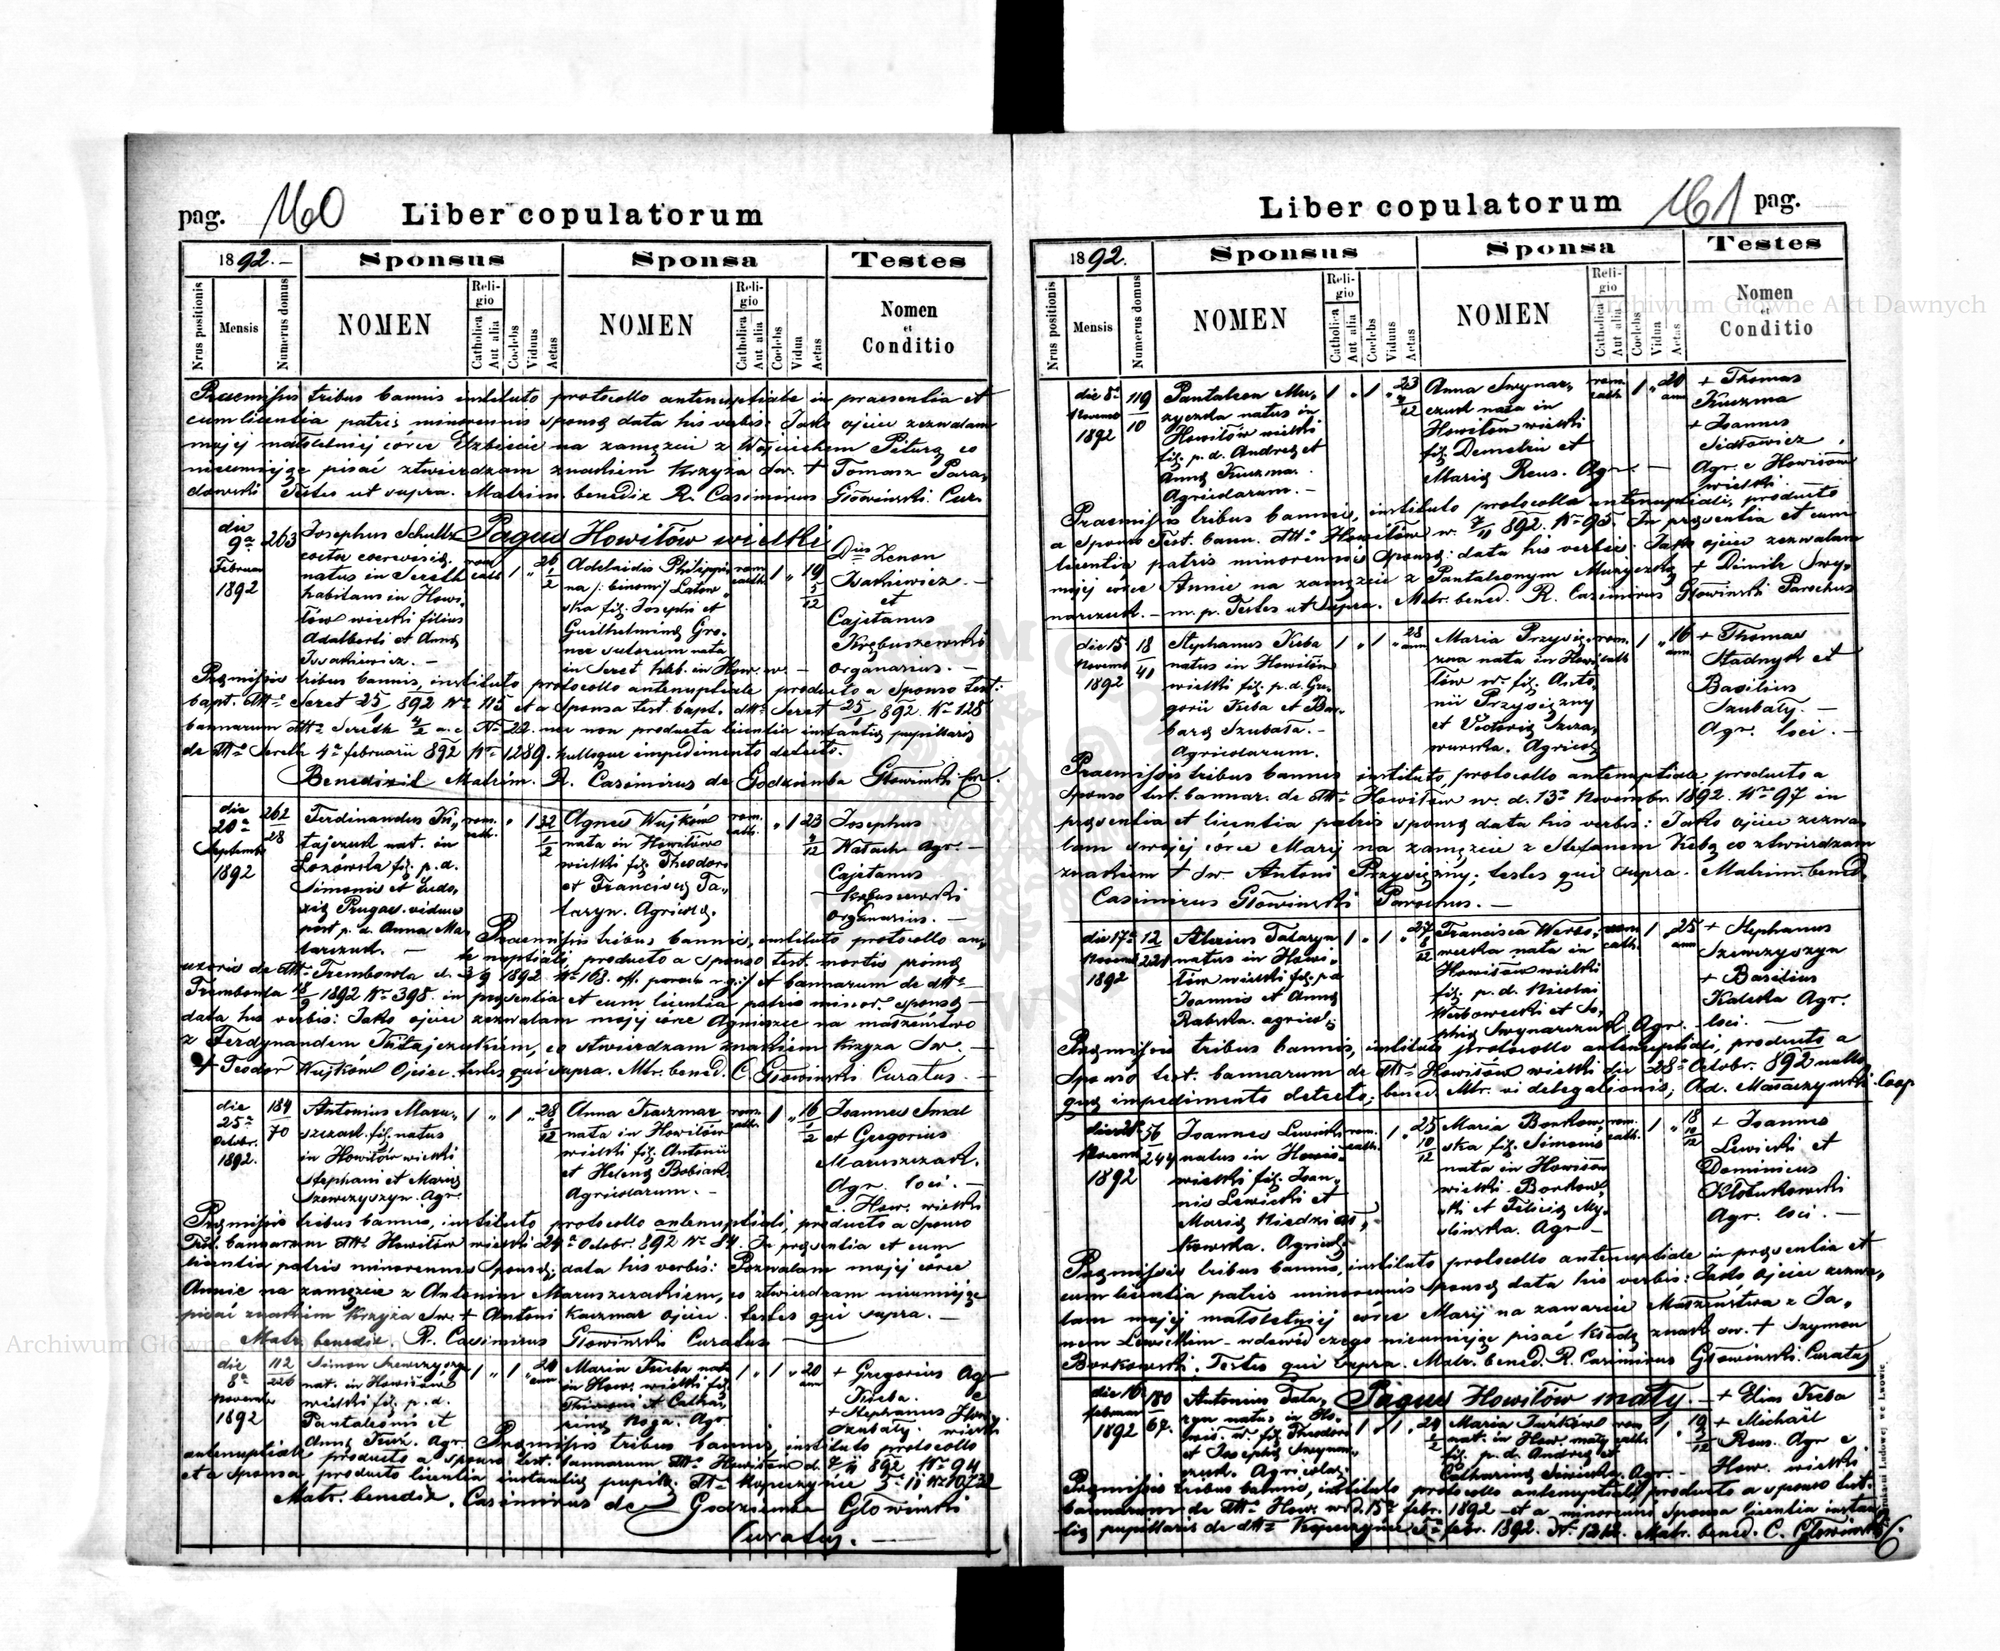 pag. 160 Liber copulatorum
1892.— Sponsus Sponsa Testes
Nrus positionis Mensis Numerus domus NOMEN Religio Catholica Aut alia Coelebs Viduus Aetas NOMEN Religio Catholica Aut alia Coelebs Vidua Aetas Nomen et Conditio
Praemissis tribus bannis instituto protocollo antenuptiale in praesentia et
cum licentia patris minorennis sponsę data his verbis: Jako ojciec zezwalam
mojej małoletniej córce Elżbiecie na zamęzcie z Wojciechem Piturą co
nieumiejąc pisać ztwierdzam znakiem krzyża św. + Tomasz Para-
dowski Testes ut supra. Matrim. benedix R. Casimirus Głowinski Cur.
Pagus Howiłów wielki
die 9ª Februar 1892
263
Josephus Schultz
cocta cerevisię
natus in Sereth
habitans in Howi-
łów wielki filius
Adalberti et Annę
Isackiewicz. —
rom. cath. 1 " 26 1/2
Adelaidis Philippi-
na /: binom:/ Latow-
ska fil. Josephi et
Guilhelminę Gro-
nce sutorum nata
in Seret hab. in How. w. —
rom. cath. 1 " 19 5/12
Dus Zenon
Isakiewicz —
et
Cajetanus
Krębuszewski
organarius. —
Pręmissis tribus bannis, instituto protocollo antenuptiale producto a Sponso test:
bapt. dtto Seret 25/1 892 Nº 115 et a Sponsa test. bapt. dtto Seret 25/1 892. Nº 128
bannarum dtto Sereth 4/2 a. c. Nº 22. nec non producta licentia instantię pupillaris
de dtto Sereth 4ª februarii 892 Nº 1289. nulloque impedimento detecto.
Benedixit Matrim. R. Casimirus de Godziemba Głowinski Cur.
die 20ª Septembr 1892
262/28
Ferdinandus Tri-
tajczuk nat. in
Łozówka fil. p. d.
Simonis et Eudo-
xię Prugar. viduus
post p. d. Anna Ma-
tarczuk. —
rom. cath. " 1 32 1/2
Agnes Wujków
nata in Howiłów
wielki fil. Theodori
et Franciscę Ta-
taryn. Agricolę.
rom. cath. " 1 23 /12
Josephus
Watach Agr. —
Cajetanus
Krębuszewski
organarius. —
Praemissis tribus bannis, instituto protocollo an-
te nuptiali producto a sponso test. mortis primę
uxoris de dtto Trembowla d. 3/9 1892 Nº 163. off. paroch r. g. et bannarum de dtto —
Trembowla 18/9 1892 Nº 398. in pręsentia et cum licentia patris minor. sponsę —
data his verbis: Jako ojciec zezwalam mojej córce Agnieszce na małżeństwo
z Ferdynandem Tritajczukiem, co stwierdzam znakiem krzyża św. —
+ Teodor Wujków Ojciec. testes qui supra. Mtr. bened. C. Głowinski Curatus. —
die 25ª Octobr. 1892.
184/70
Antonius Maru-
szczak. fil. natus
in Howiłów wielki
Stephani et Marię
Szewczyszyn. Agr.
1 " 1 " 28 5/12
Anna Kaczmar
nata in Howiłów
wielki fil. Antonii
et Helenę Bobiak.
Agricolarum. —
rom. cath. 1 " 16 1/2
Joannes Smal
et Gregorius
Maruszczak.
Agr. loci. —
e. How. wielki
Pręmissis tribus bannis, instituto protocollo antenuptiali, producto a Sponso
Test. bannarum dtto Howiłów wielki 24ª Octobr. 892 Nº 84. In pręsentia et cum
licentia patris minorennis Sponsę; data his verbis: Pozwalam mojej córce
Annie na zamęzcie z Antonim Maruszczakiem, co ztwierdzam nieumiejąc
pisać znakiem krzyża św. + Antoni Kaczmar ojciec. testes qui supra. —
Matr. benedix. R. Casimirus Głowinski Curatus
die 8ª Novembr 1892
112/226
Simon Szewczyszyn
nat. in Howiłów
wielki fil. p. d.
Pantaleonis et
Annę Kuź. Agr.
1 " 1 " 24 ann
Maria Kreba nata
in How. wielki fil.
Thimoni et Catha-
rinę Noga. Agr.
1 " 1 " 20 ann
+ Gregorius Agr.
Kreba. e
+ Stephanus How.
Szubały. wielki
Pręmissis tribus bannis, instituto protocollo
antenuptiale producto a sponso test. bannarum dtto Howiłów d. 7/11 892 Nº 94
et a Sponsa, producto licentia instantię pupill. dtto Kopeczyńce 3/11 Nº 10732
Matr. benedix. Casimirus de Godziemba Głowinski
Curatus. —
Liber copulatorum 161 pag.
1892. Sponsus Sponsa Testes
Nrus positionis Mensis Numerus domus NOMEN Religio Catholica Aut alia Coelebs Viduus Aetas NOMEN Religio Catholica Aut alia Coelebs Vidua Aetas Nomen et Conditio
die 8ª Novembr 1892
119/10
Pantaleon Mu-
zyczka natus in
Howiłów wielki
fil. p. d. Andreę et
Annę Kuczma.
Agricolarum. —
1 " 1 " 23 /12
Anna Swynar-
czuk nata in
Howiłów wielki
fil. Demetrii et
Marię Reus. Agr. —
rom. cath. 1 " 20 ann
+ Thomas
Kuczma
+ Joannes
Sidłowicz.
Agr. e Howiłów
wielki
Praemissis tribus bannis, instituto protocollo antenuptiali, producto
a Sponso Test. bann. dtto Howiłów w. 7/11 892. Nº 95. In pręsentia et cum
licentia patris minorennis Sponsę: data his verbis: Jako ojciec zezwalam
mojej córce Annie na zamęzcie z Pantaleonym Muzyczką + Dimitr Swy-
narczuk. — m. p. Testes ut Supra. Matr. bened. R. Casimirus Głowinski Parochus
die 15 Novembr 1892
18/41
Stephanus Kreba
natus in Howiłów
wielki fil. p. d. Gre-
gorii Kreba et Bar-
barę Szubała. —
Agricolarum.
1 " 1 " 28 ann
Maria Przysię-
żna nata in Howi-
łów w. fil. Anto-
nii Przysiężny
et Victorię Szcza-
wurska. Agricolę
rom. cath 1 " 16 ann.
+ Thomas
Stadnyk et
Basilius
Szubały. —
Agr. loci. —
Praemissis tribus bannis instituto protocollo antenuptiale, producto a
Sponso test. bannar. de dtto Howiłów w. d. 13ª Novembr. 1892. Nº 97 in
pręsentia et licentia patris sponsę data his verbis: Jako ojciec zezwa-
lam swojej córce Marij na zamęzcie z Stefanem Krebą co ztwierdzam
znakiem + św. Antoni Przysiężny; testes qui supra. Matrim. bened.
Casimirus Głowinski Parochus. —
die 17ª Novembr 1892
12/221
Alexius Tataryn
natus in Howi-
łów wielki fil. p. d.
Joannis et Annę
Rabska. agricol.
1 " 1 " 27 8/12
Francisca Werbo-
wecka nata in
Howiłów wielki
fil. p. d. Nicolai
Werbowecki et So-
phię Swynarczuk. Agr. —
rom. cath. 1 " 25 ann
+ Stephanus
Szewczyszyn
+ Basilius
Kaleka Agr.
loci. —
Pręmissis tribus bannis, instituto protocollo antenuptiali, producto a
Sponso test. bannarum de dtto Howiłów wielki die 28ª Octobr. 892 nullo-
que impedimento detecto; bened. Mtr. vi delegationis; Ad. Masaczyński Coop
die 21ª Novemb 1892
56/244
Joannes Lewicki
natus in Howił-
wielki fil. Joan-
nis Lewicki et
Marię Niedzwi-
kowska. Agricol.
rom. cath. 1 " 25 10/12
Maria Borkow-
ska fil. Simonis
nata in Howiłów
wielki Borkow-
ski et Felicię My-
slinska. Agr —
rom. cath. 1 " 18 10/12
+ Joannes
Lewicki et
Dominicus
Kłotukowski
Agr. loci. —
Pręmissis tribus bannis, instituto protocollo antenuptiale in pręsentia et
cum licentia patris minorennis Sponsę data his verbis: Jako ojciec zezwa-
lam mojej małoletniej córce Marij na zawarcie Małżeństwa z Ja-
nem Lewickim — wdowód czego nieumiejąc pisać kładę znak św. + Szymon
Borkowski. Testes qui supra. Matr. bened. R. Casimirus Głowinski. Curatus
Pagus Howiłów mały. —
die 16 februar 1892
180/67.
Antonius Tata-
ryn natus in Ho-
wił. w. fil. Theodori
et Josephę Swynar-
czuk. Agricolar.
1 " 1 " 24 1/2
Maria Jurków
nat. in How. mały
fil. p. d. Andreę et
Catharinę Siwicka. Agr. —
rom. cath. 1 " 19 3/12
+ Elias Kreba
+ Michaël
Reus. Agr e
How. wielki
Pręmissis tribus bannis, instituto protocollo antenuptiali, producto a sponso test.
bannarum de dtto How. w. d. 15ª febr. 1892 — et a minorenni Sponsa licentia instan-
tię pupillaris de dtto Kopeczyńce 5ª febr. 1892. Nº 1212. Matr. bened. C. Głowinski
Drukarni Ludowej we Lwowie
Archiwum Główne Akt Dawnych
Archiwum Główne